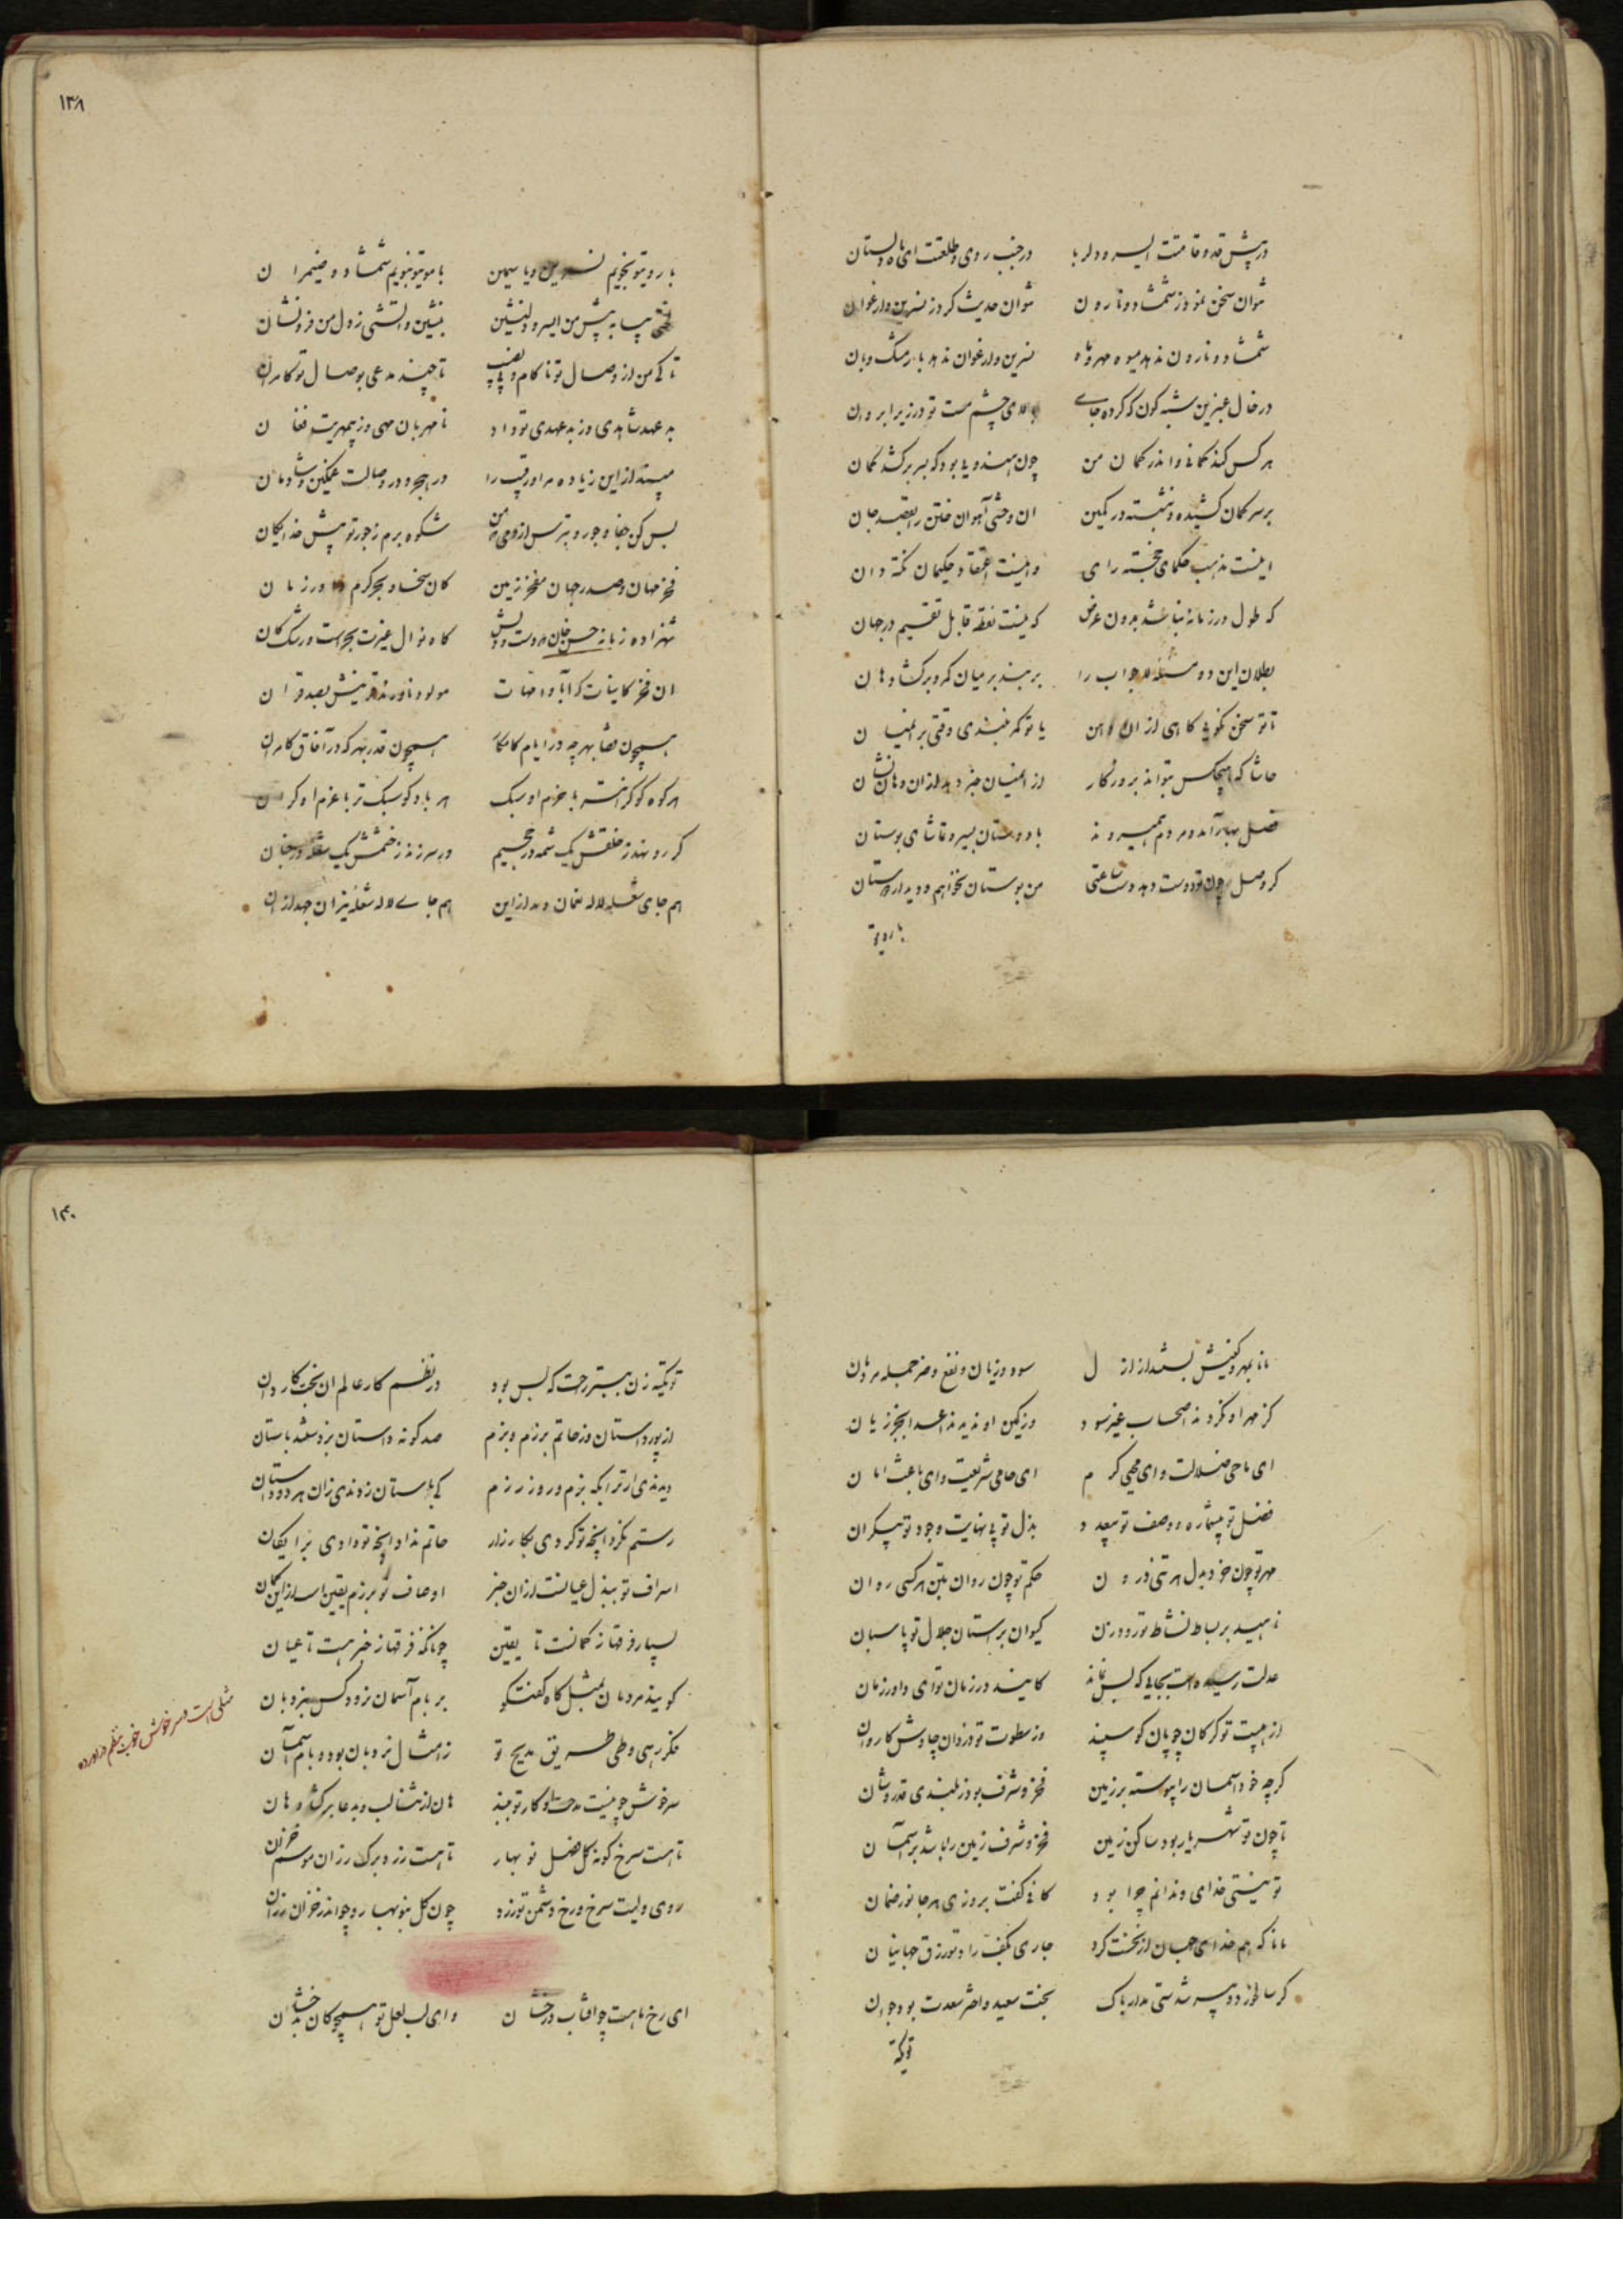 در پیش قد و قامتت ای سرو دلربا در جنب روی و طلعتت ای ماه دلستان
نتوان سخن نمود ز شمشاد و نارون نتوان حدیث کرد ز نسرین و ارغوان
شمشاد و نارون ندهد میوه مهر و ماه نسرین و ارغوان ندهد بار مشک و بان
در خال عنبرین شبه گون که کرده جای بالای چشم مست تو در زیر ابروان
هر کس کند کمانی و اندر کمان من چون هندویی بود که بسر برکشد کمان
بر سر کمان کشیده و بنشسته در کمین ان وحشی آهوان ختن را بقصد جان
اینست مذهب حکمای خجسته رای وینست اعتقاد حکیمان نکته دان
که طول در زمانه نباشد بدون عرض که نیست نقطه قابل تقسیم در جهان
بطلان این دو مسئله لاجواب را بربند بر میان کمر و برگشا دهان
تا تو سخن نگویی کاهی از ان دهن یا تو کمر نبندی وقتی بر انمیان
حاشا که هیچکس بتواند بروزگار از انمیان خبر دهد از ان دهان نشان
فصل بهار آمد و مردم همیروند با دوستان بسیر و تماشای بوستان
گر وصل چون تو دوست دهد دست ساعتی من بوستان نخواهم و دیدار دوستان
با رویتو
۱۳۸
با رویتو نجویم نسرین و یاسمین با مویتو نبویم شمشاد و ضیمران
بیا به پیش من ای سرو دلنشین بنشین و آتشی ز دل من فرونشان
تا کی من از وصال تو ناکام و بی نصیب تا چند مدعی بوصال تو کامران
بد عهد شاهدی و ز بد عهدی تو داد نامهربان مهی و ز بیمهریت فغان
مپسند از این زیاده مرا و رقیب را در هجر و در وصالت غمگین و شادمان
بس کن جفا و جور و بترس از دمی که من شکوه برم ز جور تو پیش خدایگان
فخر مهان و صدر جهان مفخر زمین کان سخا و بحر کرم داور زمان
شهزاده زمانه حسن خان که دست و دلش گاه نوال غیرت بحر است و رشک کان
ان فخر کاینات کز آبا و امهات مولود ناورند قرینش بصد قران
همچون قضا بهرچه در ایام کامکار همچون قدر بهر که در آفاق کامران
هر کوه کو گرانتر با حزم او سبک هر باد کو سبک تر با عزم او گران
گر رو نهد ز خلقش یک شمه در جحیم ور سر زند ز خشمش یک شعله در جنان
هم جای شعله لاله نعمان دمد از این هم جای لاله شعله نیران جهد از ان
مانا بمهر و کینش بسته شد از ازل سود و زیان و نفع و ضر جمله مردمان
کز مهر او نکردند اصحاب غیر سود وز کین او ندیدند اعدا بجز زیان
ای ماحی ضلالت و ای محیی کرم ای حامی شریعت و ای باعث امان
فضل تو بیشماره و وصف تو بیعدد بذل تو بی نهایت و جود تو بیکران
مهر تو چون خرد بدل هر تنی درون حکم تو چون روان بتن هر کسی روان
ناهید بر بساط نشاط تو رودزن کیوان بر استان جلال تو پاسبان
عدلت رسیده است بجایی که بس نماند کایند در زمان تو ای داور زمان
از هیبت تو گرگان چوپان گوسپند وز سطوت تو دزدان چاوش کاروان
گرچه خود آسمان را پیوسته بر زمین فخر و شرف بود ز بلندی قدر و شان
تا چون تو شهریار بود ساکن زمین فخر و شرف زمین را باشد بر آسمان
تو نیستی خدای و ندانم چرا بود کافی کفت بروزی هر جانور ضمان
مانا که هم خدای جهان از نخست کرد جاری بکف راد تو رزق جهانیان
گر سالخورد و پیر شدستی مدار باک بخت سعید و اختر سعدت بود جوان
تو تکیه
۱۴۰
تو تکیه زن ببستر راحت که بس بود در نظم کار عالم ان بخت کاردان
از پور داستان وز حاتم برزم و بزم صد گونه داستان بزد و شد باستان
دیدندی ار ترا بگه بزم و روز رزم کی باستان زدندی زان هر دو داستان
رستم نکرد آنچه تو کردی بکارزار حاتم نداد آنچه تو دادی برایگان
اسراف تو ببذل عیانست از ان خبر اوصاف تو برزم یقین است از این گمان
بسیار فرقها ز گمانست تا یقین چونانکه فرقها ز خبر هست تا عیان
گویند مردمان بمثل گاه گفتگو بر بام آسمان نرود کس بنردبان
فکر رهی و طی طریق مدیح تو ز امثال نردبان بود و بام آسمان
سرخوش چو نیست مدحت او کار تو ببند هان از ثنا لب و بدعا برگشا دهان
تا هست سرخ گونه گل فصل نوبهار تا هست زرد برگ رزان موسم خزان
روی ولیت سرخ و رخ دشمن تو زرد چون گل بنوبهار و چو اندر خزان رزان
مثلی است سرخوش خوب بنظم در آورده
ای رخ ماهت چو افتاب درخشان وای لب لعل تو همچو کان بدخشان